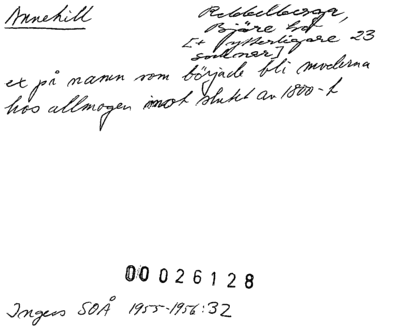 Annehill
Rebbelberga,
Bjäre hd
[+ ytterligare 23
socknar]
ex på namn som började bli moderna
hos allmogen imot slutet av 1800-t
00026128
Ingers SOÅ 1955-1956:32